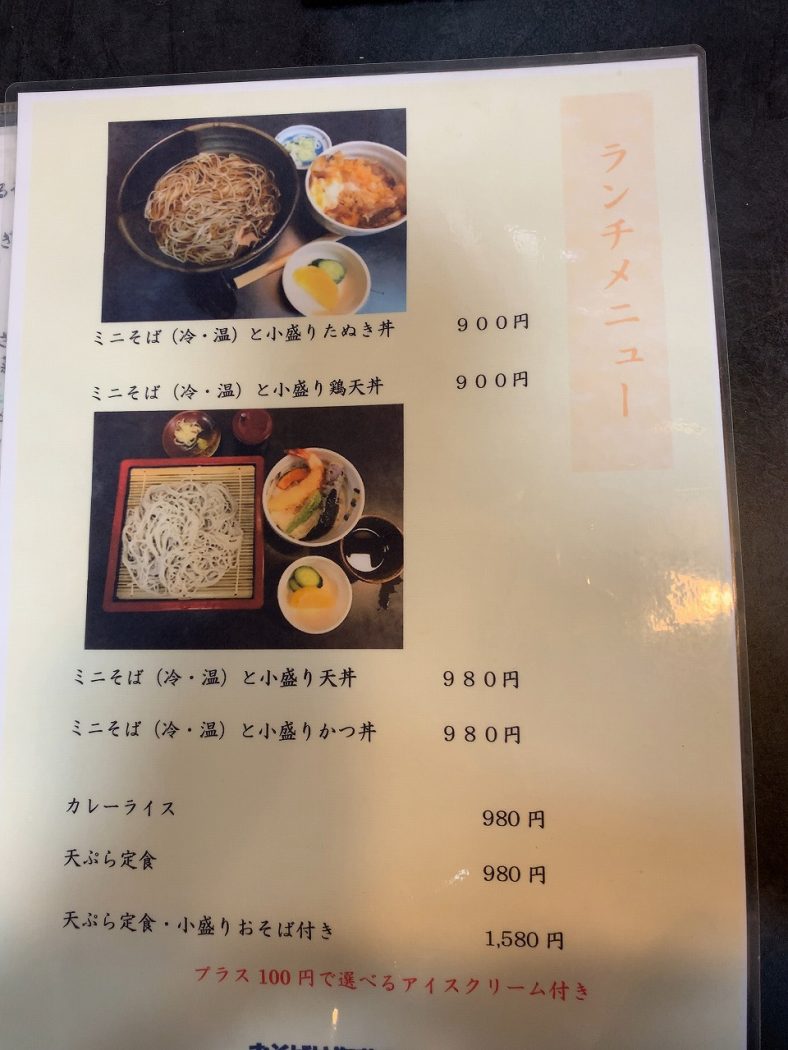 ランチメニュー
ミニそば（冷・温）と小盛りたぬき丼 ９００円
ミニそば（冷・温）と小盛り鶏天丼 ９００円
ミニそば（冷・温）と小盛り天丼 ９８０円
ミニそば（冷・温）と小盛りかつ丼 ９８０円
カレーライス 980 円
天ぷら定食 980 円
天ぷら定食・小盛りおそば付き 1,580 円
プラス 100 円で選べるアイスクリーム付き